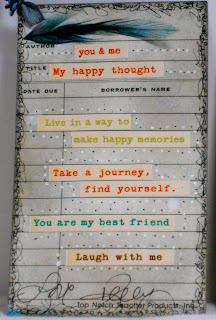 AUTHOR you & me
TITLE My happy thought
DATE DUE BORROWER'S NAME
Live in a way to
make happy memories
Take a journey,
find yourself.
You are my best friend
Laugh with me
Love
Top Notch Teacher Products, Inc.